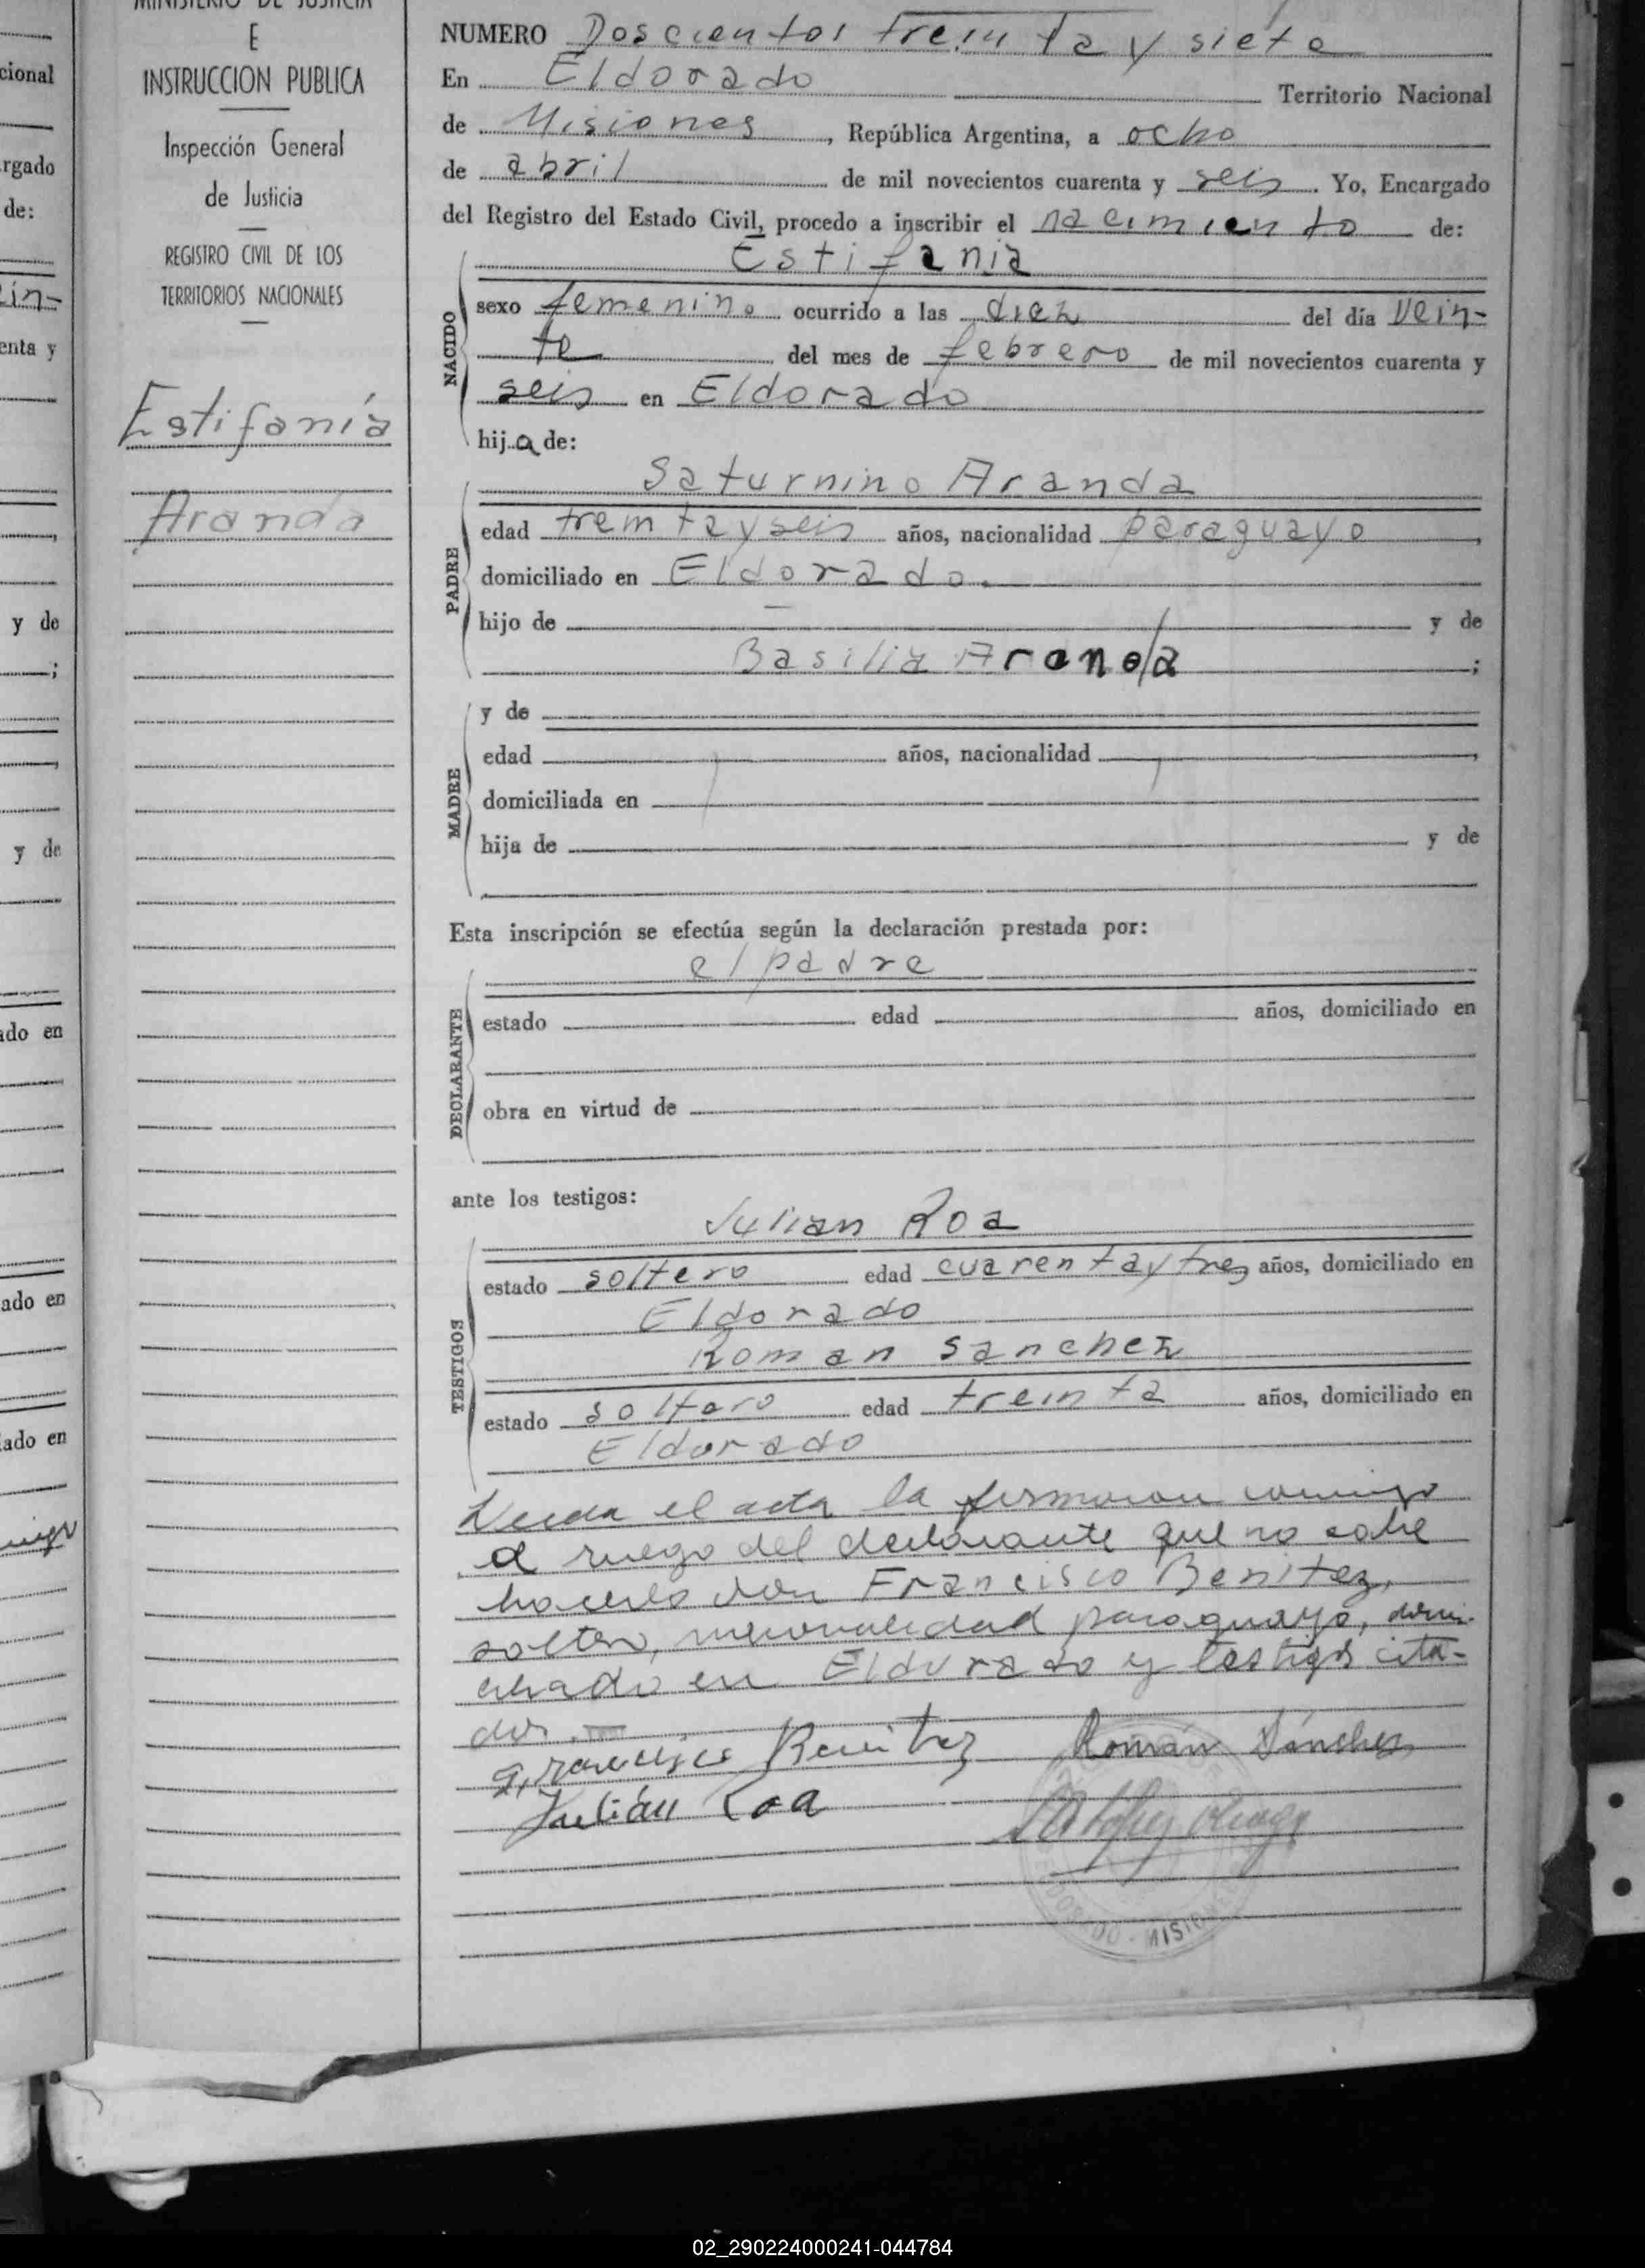 MINISTERIO DE JUSTICIA
E
INSTRUCCION PUBLICA
Inspección General
de Justicia
REGISTRO CIVIL DE LOS
TERRITORIOS NACIONALES
Estifanía
Aranda
cional
rgado
de:
ein-
enta y
y de
;
y de
ado en
ado en
ado en
NUMERO Doscientos treinta y siete
En Eldorado Territorio Nacional
de Misiones, República Argentina, a ocho
de abril de mil novecientos cuarenta y seis. Yo, Encargado
del Registro del Estado Civil, procedo a inscribir el nacimiento de:
Estifania
NACIDO
sexo femenino ocurrido a las diez del día vein-
te del mes de febrero de mil novecientos cuarenta y
seis en Eldorado
hija de:
Saturnino Aranda
PADRE
edad treinta y seis años, nacionalidad paraguayo,
domiciliado en Eldorado.
hijo de y de
Basilia Aranda;
MADRE
y de
edad años, nacionalidad,
domiciliada en
hija de y de
Esta inscripción se efectúa según la declaración prestada por:
el padre
DECLARANTE
estado edad años, domiciliado en
obra en virtud de
ante los testigos:
Julian Roa
TESTIGOS
estado soltero edad cuarenta y tres años, domiciliado en
Eldorado
Roman Sanchez
estado soltero edad treinta años, domiciliado en
Eldorado
Leida el acta la firmaron conmigo
a ruego del declarante que no sabe
hacerlo don Francisco Benitez,
soltero, nacionalidad paraguayo, domi-
ciliado en Eldorado y testigos cita-
dos.
Francisco Benitez Román Sánchez
Julián Roa
ELDORADO - MISIONES
02_290224000241-044784